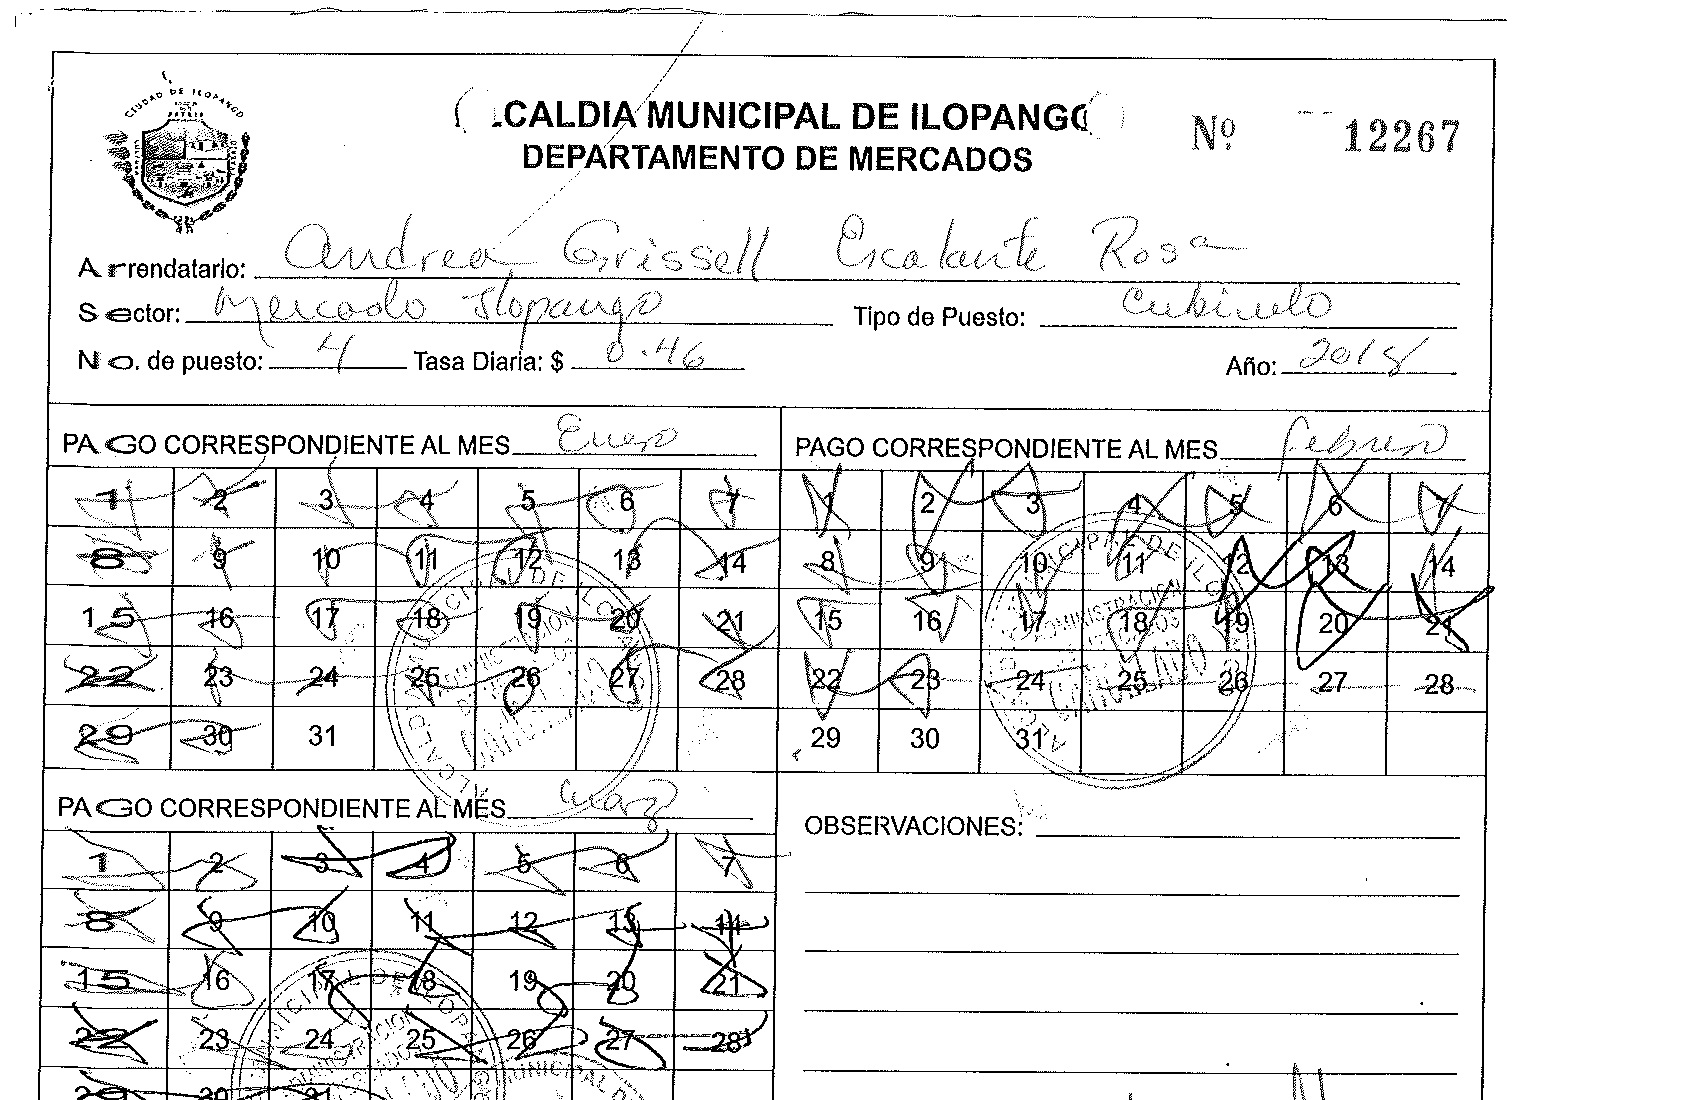 CIUDAD DE ILOPANGO
.CALDIA MUNICIPAL DE ILOPANGO
DEPARTAMENTO DE MERCADOS
Nº 12267
Arrendatario: Andrea Grissell Escalante Rosa
Sector: Mercado Ilopango Tipo de Puesto: Cubiculo
No. de puesto: 4 Tasa Diaria: $ 0.46 Año: 2018
PAGO CORRESPONDIENTE AL MES Enero
1 2 3 4 5 6 7
8 9 10 11 12 13 14
15 16 17 18 19 20 21
22 23 24 25 26 27 28
29 30 31
PAGO CORRESPONDIENTE AL MES febrero
1 2 3 4 5 6 7
8 9 10 11 12 13 14
15 16 17 18 19 20 21
22 23 24 25 26 27 28
29 30 31
PAGO CORRESPONDIENTE AL MES marzo
1 2 3 4 5 6 7
8 9 10 11 12 13 14
15 16 17 18 19 20 21
22 23 24 25 26 27 28
29 30 31
OBSERVACIONES:
CANCELADO